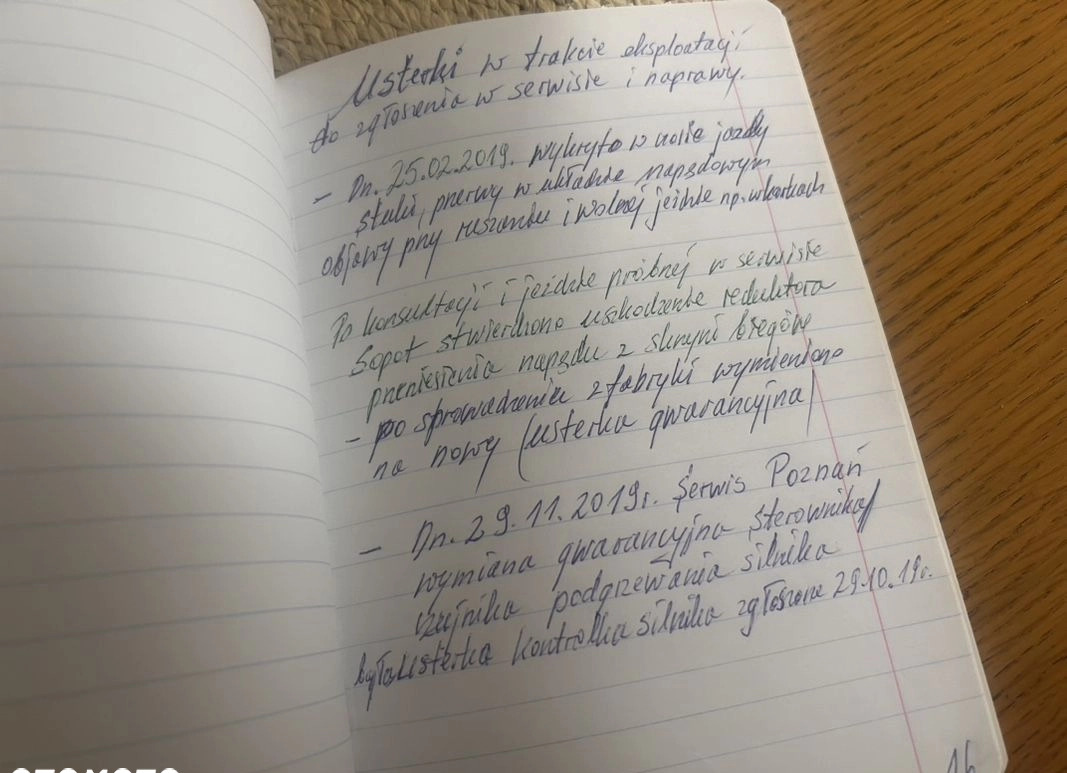 Usterki w trakcie eksploatacji
do zgłoszenia w serwisie i naprawy.
- Dn. 25.02.2019. wykryto w czasie jazdy
stuki, przerwy w układzie napędowym
objawy przy ruszaniu i wolnej jeździe np. w korkach
Po konsultacji i jeździe próbnej w serwisie
Sopot stwierdzono uszkodzenie reduktora
przeniesienia napędu z skrzyni biegów
- po sprowadzeniu z fabryki wymieniono
na nowy (usterka gwarancyjna)
- Dn. 29.11.2019r. Serwis Poznań
wymiana gwarancyjna sterownika/
czujnika podgrzewania silnika
była usterka kontrolka silnika zgłoszone 29.10.19r.
16
OTOMOTO